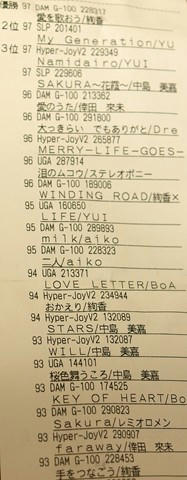 優勝 97 DAM G-100 228317
愛を歌おう/絢香
2位 97 SLP 201401
My Generation/YU
3位 97 Hyper-JoyV2 229349
Namidairo/YUI
97 SLP 229606
SAKURA～花霞～/中島 美嘉
96 DAM G-100 213362
愛のうた/倖田 來未
96 DAM G-100 291800
大っきらい でもありがと/Dre
96 Hyper-JoyV2 265877
MERRY-LIFE-GOES-
96 UGA 287914
泪のムコウ/ステレオポニー
96 DAM G-100 169006
WINDING ROAD/絢香×
95 UGA 160650
LIFE/YUI
95 DAM G-100 289893
milk/aiko
95 DAM G-100 228323
二人/aiko
94 UGA 213371
LOVE LETTER/BoA
94 Hyper-JoyV2 234944
おかえり/絢香
94 Hyper-JoyV2 132089
STARS/中島 美嘉
93 Hyper-JoyV2 132087
WILL/中島 美嘉
93 UGA 144101
桜色舞うころ/中島 美嘉
93 DAM G-100 174525
KEY OF HEART/Bo
93 DAM G-100 290823
Sakura/レミオロメン
93 Hyper-JoyV2 290907
faraway/倖田 來
93 DAM G-100 228453
手をつなごう/絢香